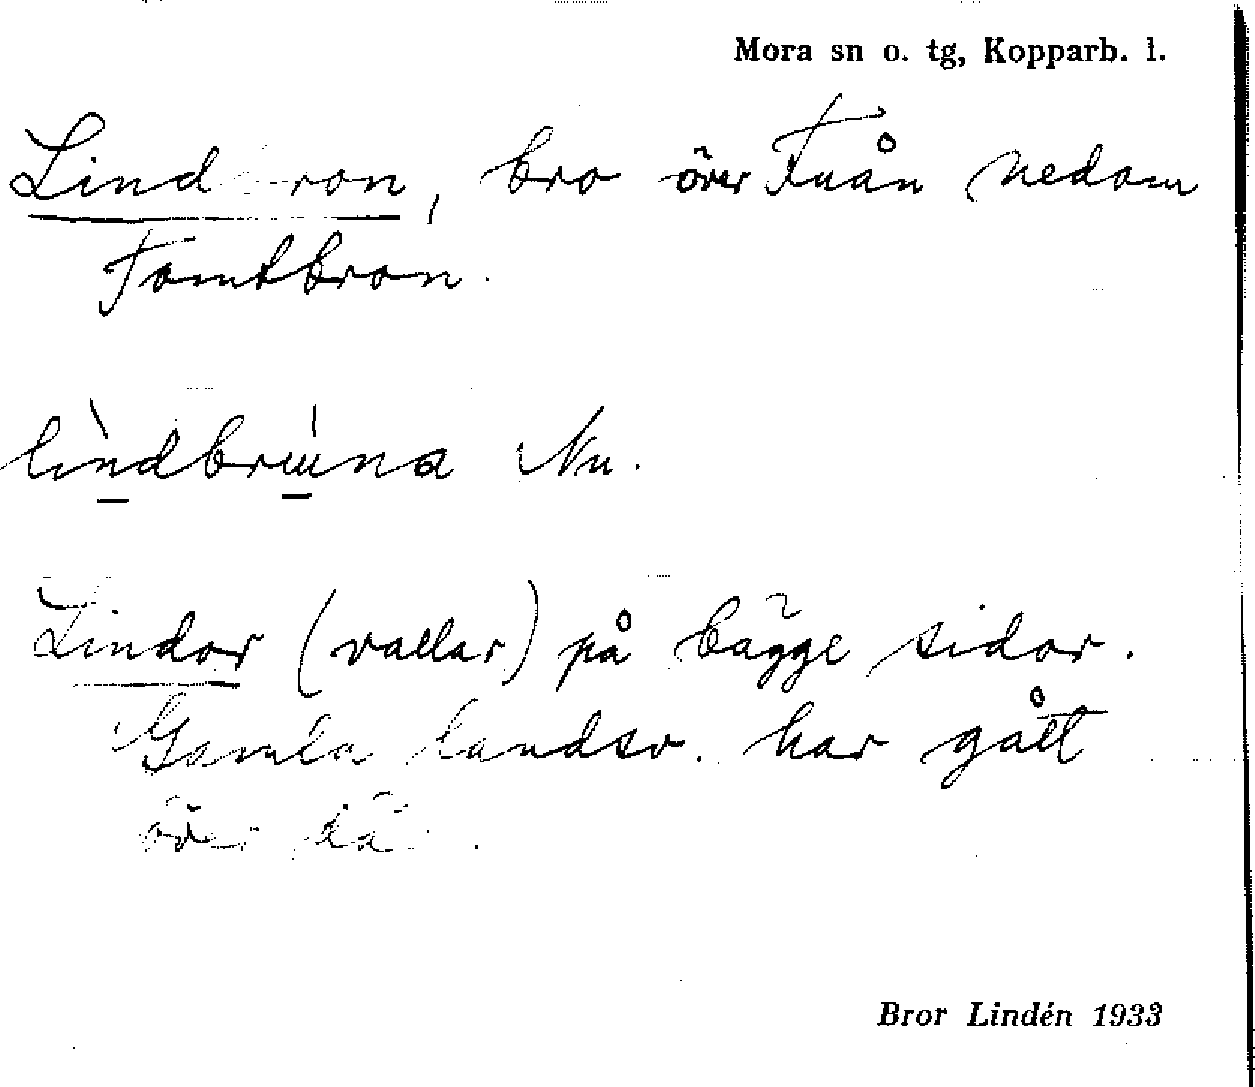 Mora sn o. tg, Kopparb. l.
Lindbron, bro över Fuån nedom
Tomtbron.
lìndbrúna Nu.
Lindor (vallar) på bägge sidor.
Gamla landsv. har gått
över där.
Bror Lindén 1933